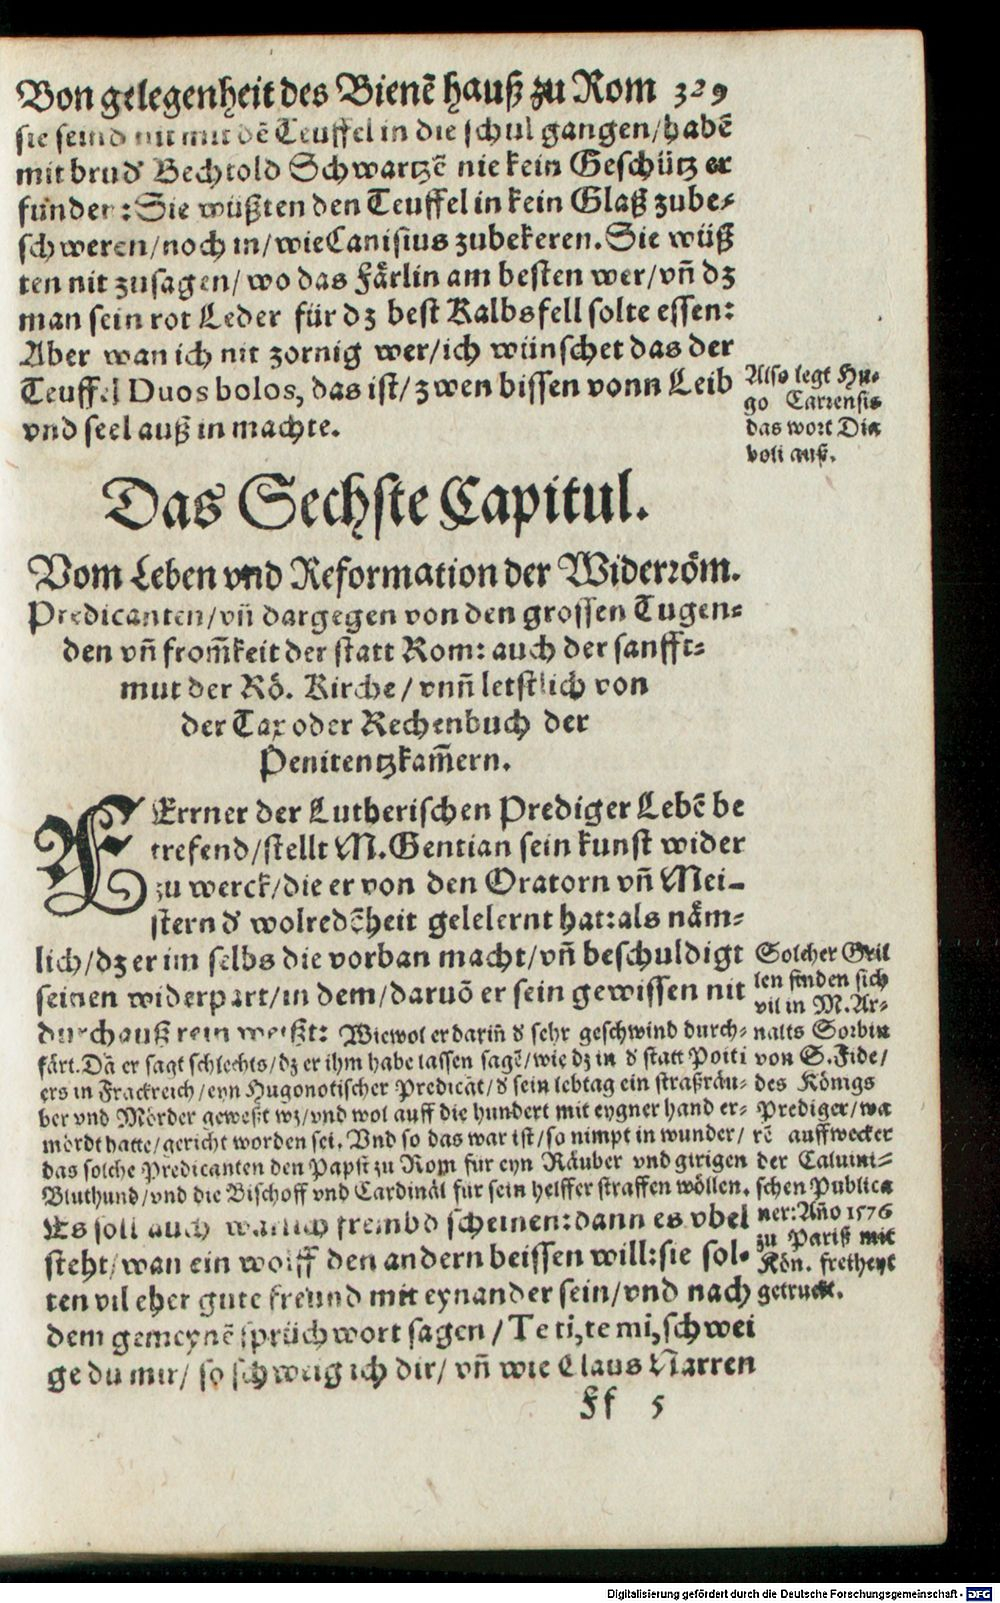 Von gelegenheit des Bienē hauß zu Rom 329
sie seind nit mit dē Teuffel in die schul gangen/habē
mit brud' Bechtold Schwartzē nie kein Geschütz er
funden: Sie wüßten den Teuffel in kein Glaß zube-
schweren/noch in/wie Canisius zubekeren. Sie wüß
ten nit zusagen/wo das Färlin am besten wer/vñ dz
man sein rot Leder für dz best Kalbsfell solte essen:
Aber wan ich nit zornig wer/ich wünschet das der
Teuffel Duos bolos, das ist/zwen bissen vonn Leib
vnd seel auß in machte.
Also legt Hu-
go Carrensis
das wort Dia
voli auß.
Das Sechste Capitul.
Vom Leben vnd Reformation der Widerröm.
Predicanten/vñ dargegen von den grossen Tugen-
den vñ from̃keit der statt Rom: auch der sanfft-
mut der Rö. Kirche/vnñ letstlich von
der Tax oder Rechenbuch der
Penitentzkam̃ern.
FErrner der Lutherischen Prediger Lebē be
trefend/stellt M. Gentian sein kunst wider
zu werck/die er von den Oratorn vñ Mei-
stern d' wolredēheit gelelernt hat:als näm-
lich/dz er im selbs die vorban macht/vñ beschuldigt
seinen widerpart/in dem/daruō er sein gewissen nit
durchauß rein weißt: Wiewol er dariñ d' sehr geschwind durch-
färt. Dā er sagt schlechts/dz er ihm habe lassen sagē/wie dz in d' statt Poiti
ers in Frackreich/eyn Hugonotischer Predicāt/d' sein lebtag ein straßräu-
ber vnd Mörder geweßt wz/vnd wol auff die hundert mit eygner hand er-
mördt hatte/gericht worden sei. Vnd so das war ist/so nimpt in wunder/
das solche Predicanten den Papst zu Rom für eyn Räuber vnd girigen
Bluthund/vnd die Bischoff vnd Cardinäl für sein helffer straffen wöllen.
Es soll auch warlich frembd scheinen:dann es vbel
steht/wan ein wolff den andern beissen will:sie sol-
ten vil eher gute freund mit eynander sein/vnd nach
dem gemeynē sprüchwort sagen/Te ti, te mi, schwei
ge du mir/so schweig ich dir/vñ wie Claus Narren
Solcher Gril
len finden sich
vil in M. Ar-
nalts Sorbin
von S. Fide/
des Königs
Prediger/wa
rē auffwecker
der Caluini-
schen Publica
ner: Año 1576
zu Pariß mit
Kön. freiheyt
getruckt.
Ff 5
Digitalisierung gefördert durch die Deutsche Forschungsgemeinschaft - DFG